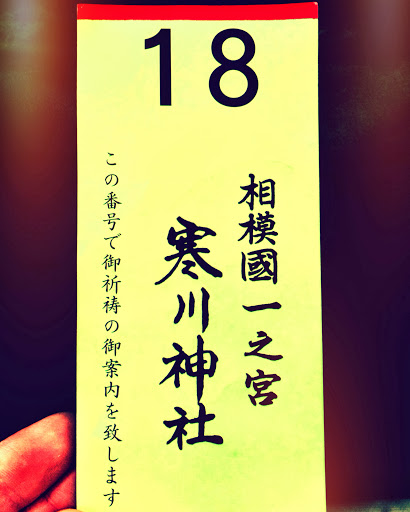 18
相模國一之宮
寒川神社
この番号で御祈祷の御案内を致します